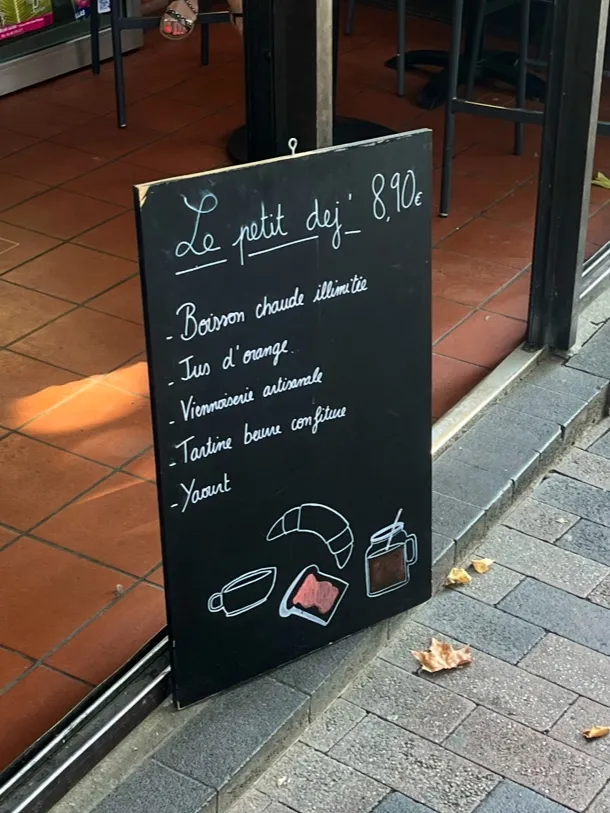 Le petit dej' 8,90€
- Boisson chaude illimitée
- Jus d'orange
- Viennoiserie artisanale
- Tartine beurre confiture
- Yaourt